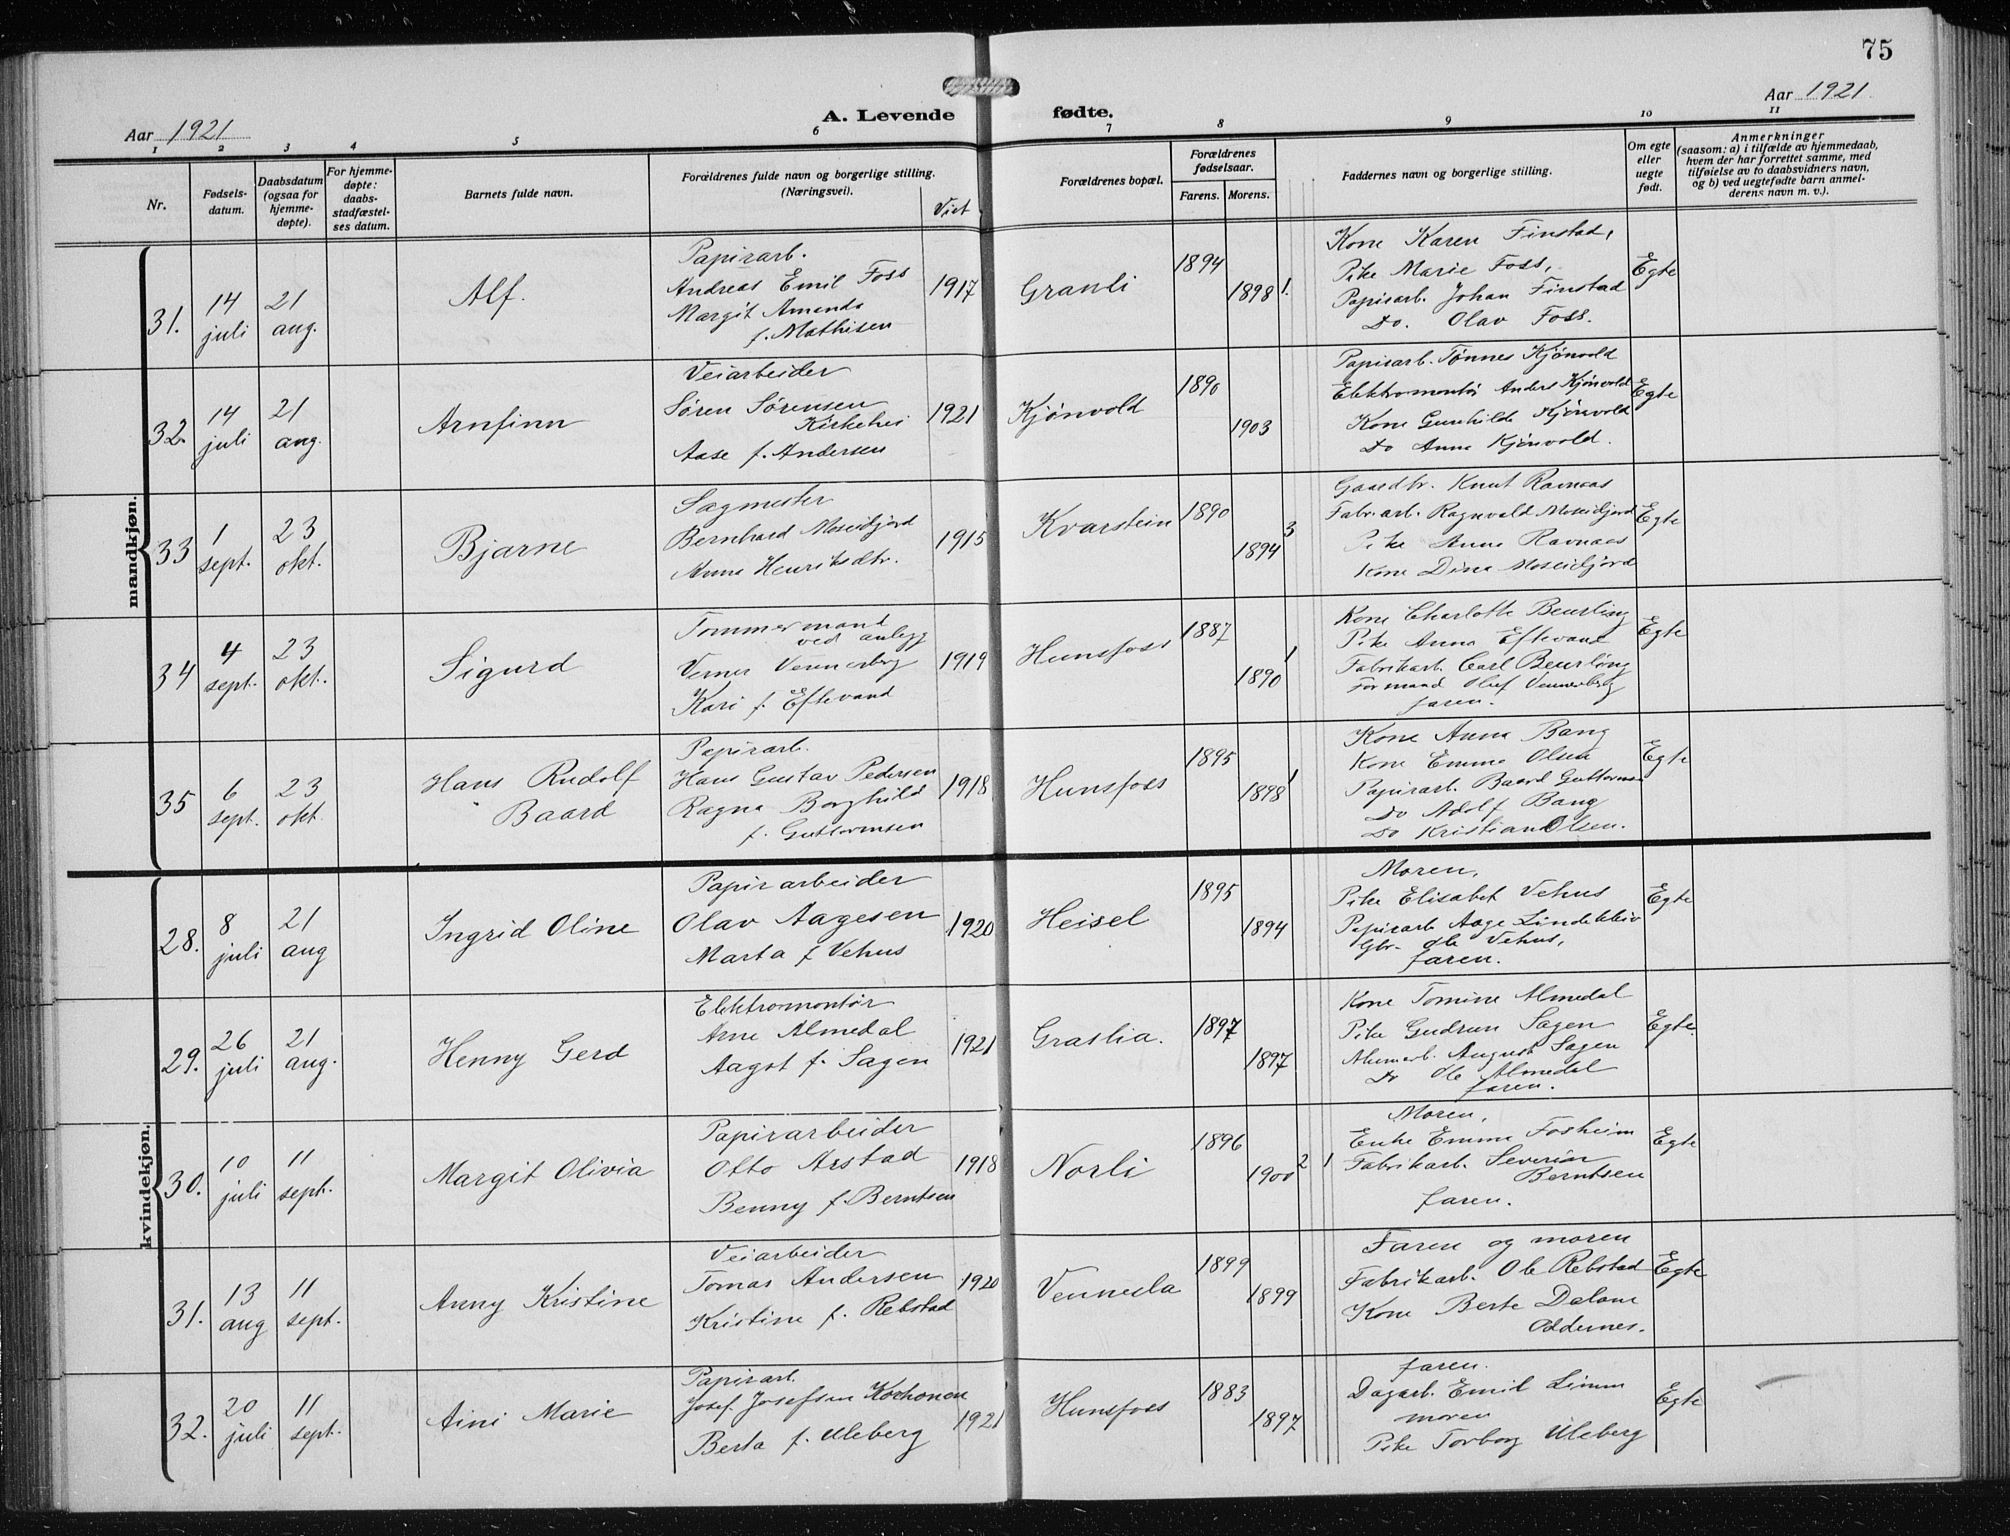 75
Aar 1921
A. Levende fødte.
Aar 1921
1 2 3 4 5 6 7 8 9 10 11
Nr.
Fødsels-
datum.
Daabsdatum
(ogsaa for
hjemme-
døpte).
For hjemme-
døpte:
daabs-
stadfæstel-
ses datum.
Barnets fulde navn.
Forældrenes fulde navn og borgerlige stilling.
(Næringsvei).
Viet
Forældrenes bopæl.
Forældrenes
fødselsaar.
Farens. Morens.
Faddernes navn og borgerlige stilling.
Om egte
eller
uegte
født.
Anmerkninger
(saasom: a) i tilfælde av hjemmedaab,
hvem der har forrettet samme, med
tilføielse av to daabsvidners navn,
og b) ved uegtefødte barn anmel-
derens navn m. v.).
mandkjøn.
31.
14
juli
21
aug.
Alf.
Papirarb.
Andreas Emil Foss
Margit Amanda
f. Mathisen
1917
Granli
1894
1898
1.
Kone Karen Finstad,
Pike Marie Foss,
Papirarb. Johan Finstad
Do. Olav Foss.
Egte
32.
14
juli
21
aug.
Arnfinn
Veiarbeider
Søren Sørensen
Kirkehei
Aase f. Andersen
1921
Kjønvold
1890
1903
Papirarb. Tønnes Kjønvold
Elektromontør Anders Kjønvold
Kone Gunhilde Kjønvold
Do Anna Kjønvold.
Egte
33
1
sept.
23
okt.
Bjarne
Sagmester
Bernhard Moseidjord
Anna Henriksdtr.
1915
Kvarstein
1890
1894
3
Gaardbr. Knut Ravnaas
Fabr.arb. Ragnvald Moseidjord
Pike Anna Ravnaas
Kone Dina Moseidjord
Egte
34
4
sept.
23
okt.
Sigurd
Tømmermand
ved anlegg
Verner Vennerberg
Kari f. Eftevand
1919
Hunsfoss
1887
1890
1
Kone Charlotte Beurling
Pike Anna Eftevand
Fabrikarb. Carl Beurling
Formand Oluf Vennerberg
faren.
Egte
35
6
sept.
23
okt.
Hans Rudolf
Baard
Papirarb.
Hans Gustav Pedersen
Ragna Borghild
f. Guttormsen
1918
Hunsfoss
1895
1898
1
Kone Anna Bang
Kone Emma Olsen
Papirarb. Baard Guttormsen
Do Adolf Bang
Do Kristian Olsen.
Egte
kvindekjøn.
28.
8
juli
21
aug
Ingrid Oline
Papirarbeider
Olav Aagesen
Marta f. Vehus
1920
Heisel
1895
1894
Moren,
Pike Elisabet Vehus
Papirarb. Aage Lindekleiv
Gbr. Ole Vehus,
faren.
Egte
29.
26
juli
21
aug.
Henny Gerd
Elektromontør
Arne Almedal
Aagot f. Sagen
1921
Graslia.
1897
1897
Kone Tomine Almedal
Pike Gudrun Sagen
August Sagen
Do Ole Almedal
faren.
Egte
30.
10
juli
11
sept.
Margit Olivia
Papirarbeider
Otto Arstad
Benny f. Berntsen
1918
Norli
1896
1900
2 1
Moren,
Enke Emma Fosheim
Fabrikarb. Severin
Berntsen
faren.
Egte
31.
13
aug
11
sept.
Anny Kristine
Veiarbeider
Tomas Andersen
Kristine f. Rebstad
1920
Vennesla
1899
1899
Faren og moren
Fabrikarb. Ole Rebstad
Kone Berte Dalane
Oddernes.
Egte
32.
20
juli
11
sept.
Aini Marie
Papirarb.
Josef Josefsen Korhonen
Berta f. Uleberg
1921
Hunsfoss
1883
1897
faren.
Dagarb. Emil Limm
moren
Pike Torborg Uleberg
Egte